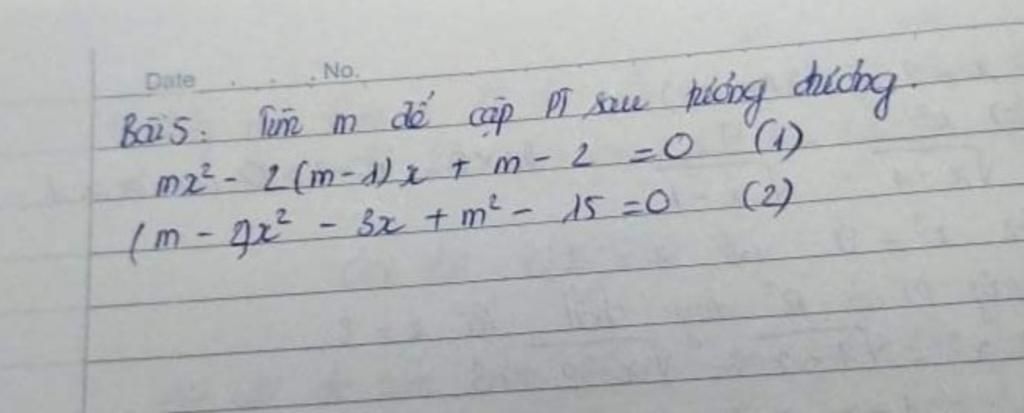 Date . . . No.
Bài 5: Tìm m để cặp PT sau tương đương.
mx² - 2(m-1)x + m - 2 = 0 (1)
(m - 2)x² - 3x + m² - 15 = 0 (2)